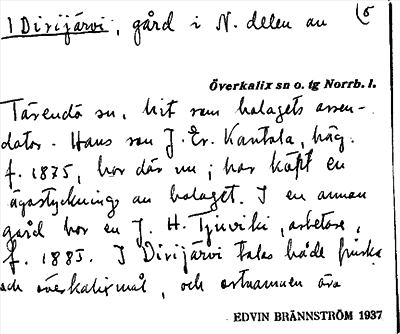 1 Dirijärvi, gård i N. delen av (5
Överkalix sn o. tg Norrb. l.
Tärendö sn, hit som bolagets arren-
dator. Hans son J. Er. Kantola,
f. 1875, bor där nu; har köpt en
ägostyckning av bolaget. I en annan
gård bor en J. H. arbetare,
f. 1885. I Dirijärvi talas både finska
och överkalixmål, och ortnamnen äro
EDVIN BRÄNNSTRÖM 1937